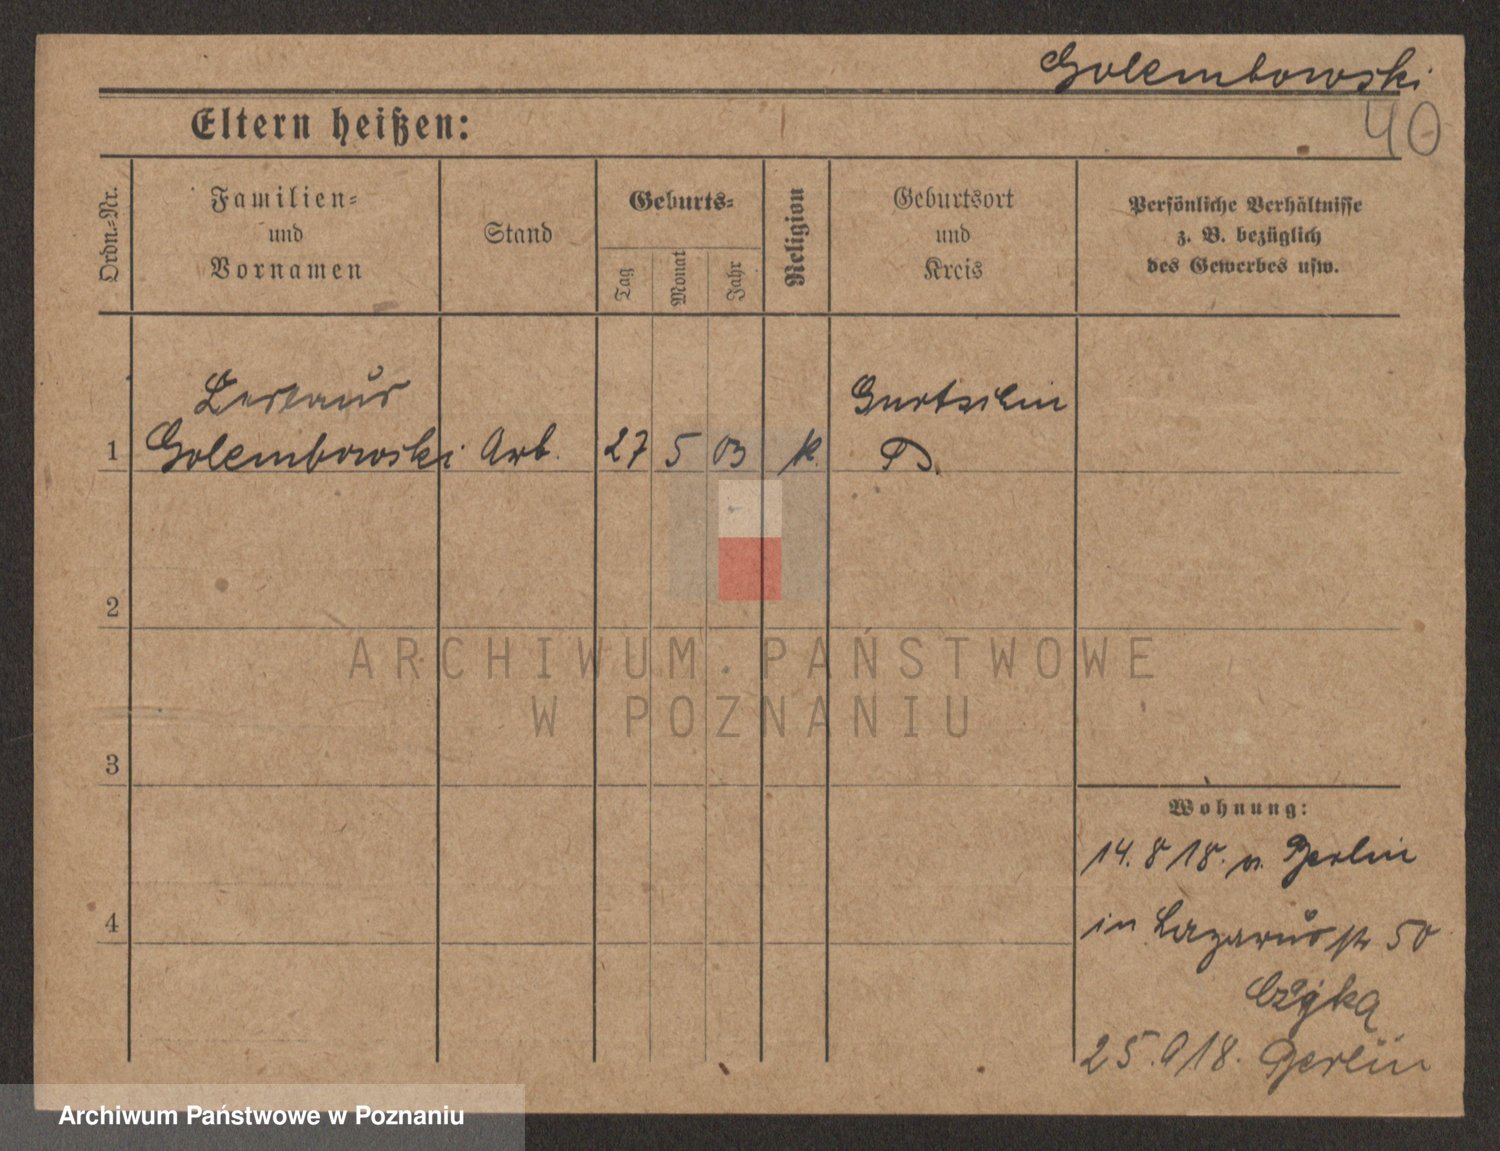 Golembowski
40
Eltern heißen:
Ordn.-Nr.
Familien-
und
Vornamen
Stand
Geburts-
Tag
Monat
Jahr
Religion
Geburtsort
und
Kreis
Persönliche Verhältnisse
z. B. bezüglich
des Gewerbes usw.
1
Golembowski Arb. 27 5 03 k.
2
ARCHIWUM PAŃSTWOWE
W POZNANIU
3
Wohnung:
14. 8 18. v. Berlin
4
in Lazarusstr 50
25. 9 18. Berlin
Archiwum Państwowe w Poznaniu